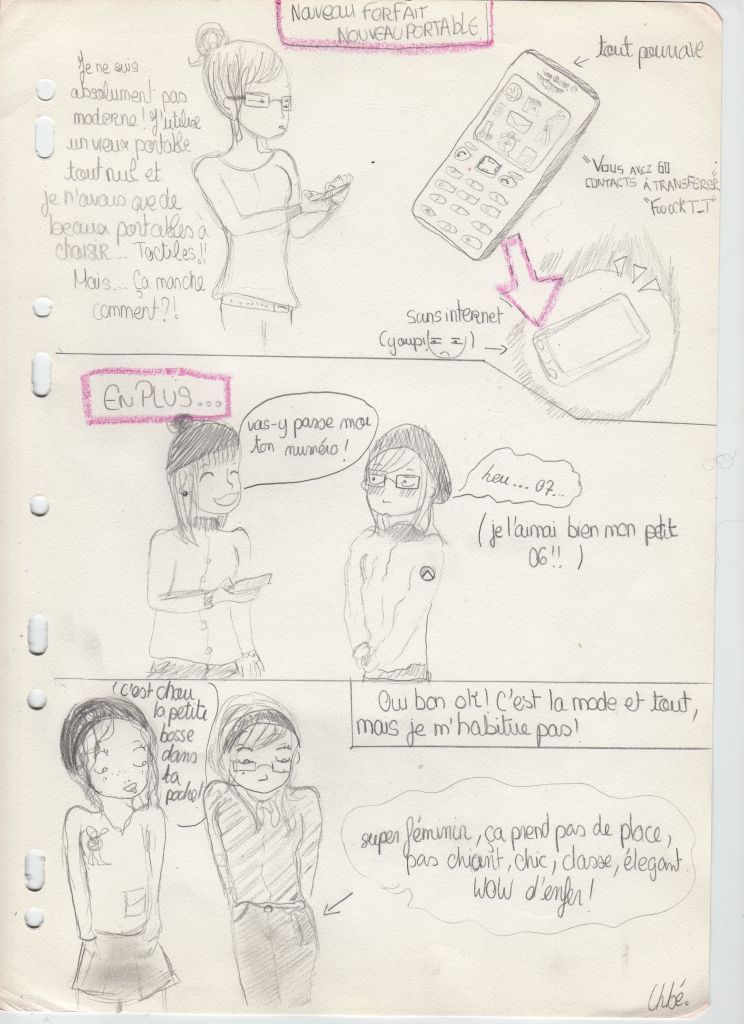 NOUVEAU FORFAIT
NOUVEAU PORTABLE
Je ne suis
absolument pas
moderne! J'utilise
un vieux portable
tout nul et
je n'avais que de
beaux portables à
choisir... Tactiles!!
Mais... Ça marche
comment?!
tout pourrave
"VOUS AVEZ 60
CONTACTS À TRANSFÉRER"
"FuockT_T"
sans internet
(youpi = =)
EN PLUS...
vas-y passe moi
ton numéro!
heu... 07...
(je l'aimai bien mon petit
06!! )
c'est chou
la petite
bosse
dans
ta
poche!
Oui bon ok! C'est la mode et tout,
mais je m'habitue pas!
super féminin, ça prend pas de place,
pas chiant, chic, classe, élegant.
WOW d'enfer!
Chloé.